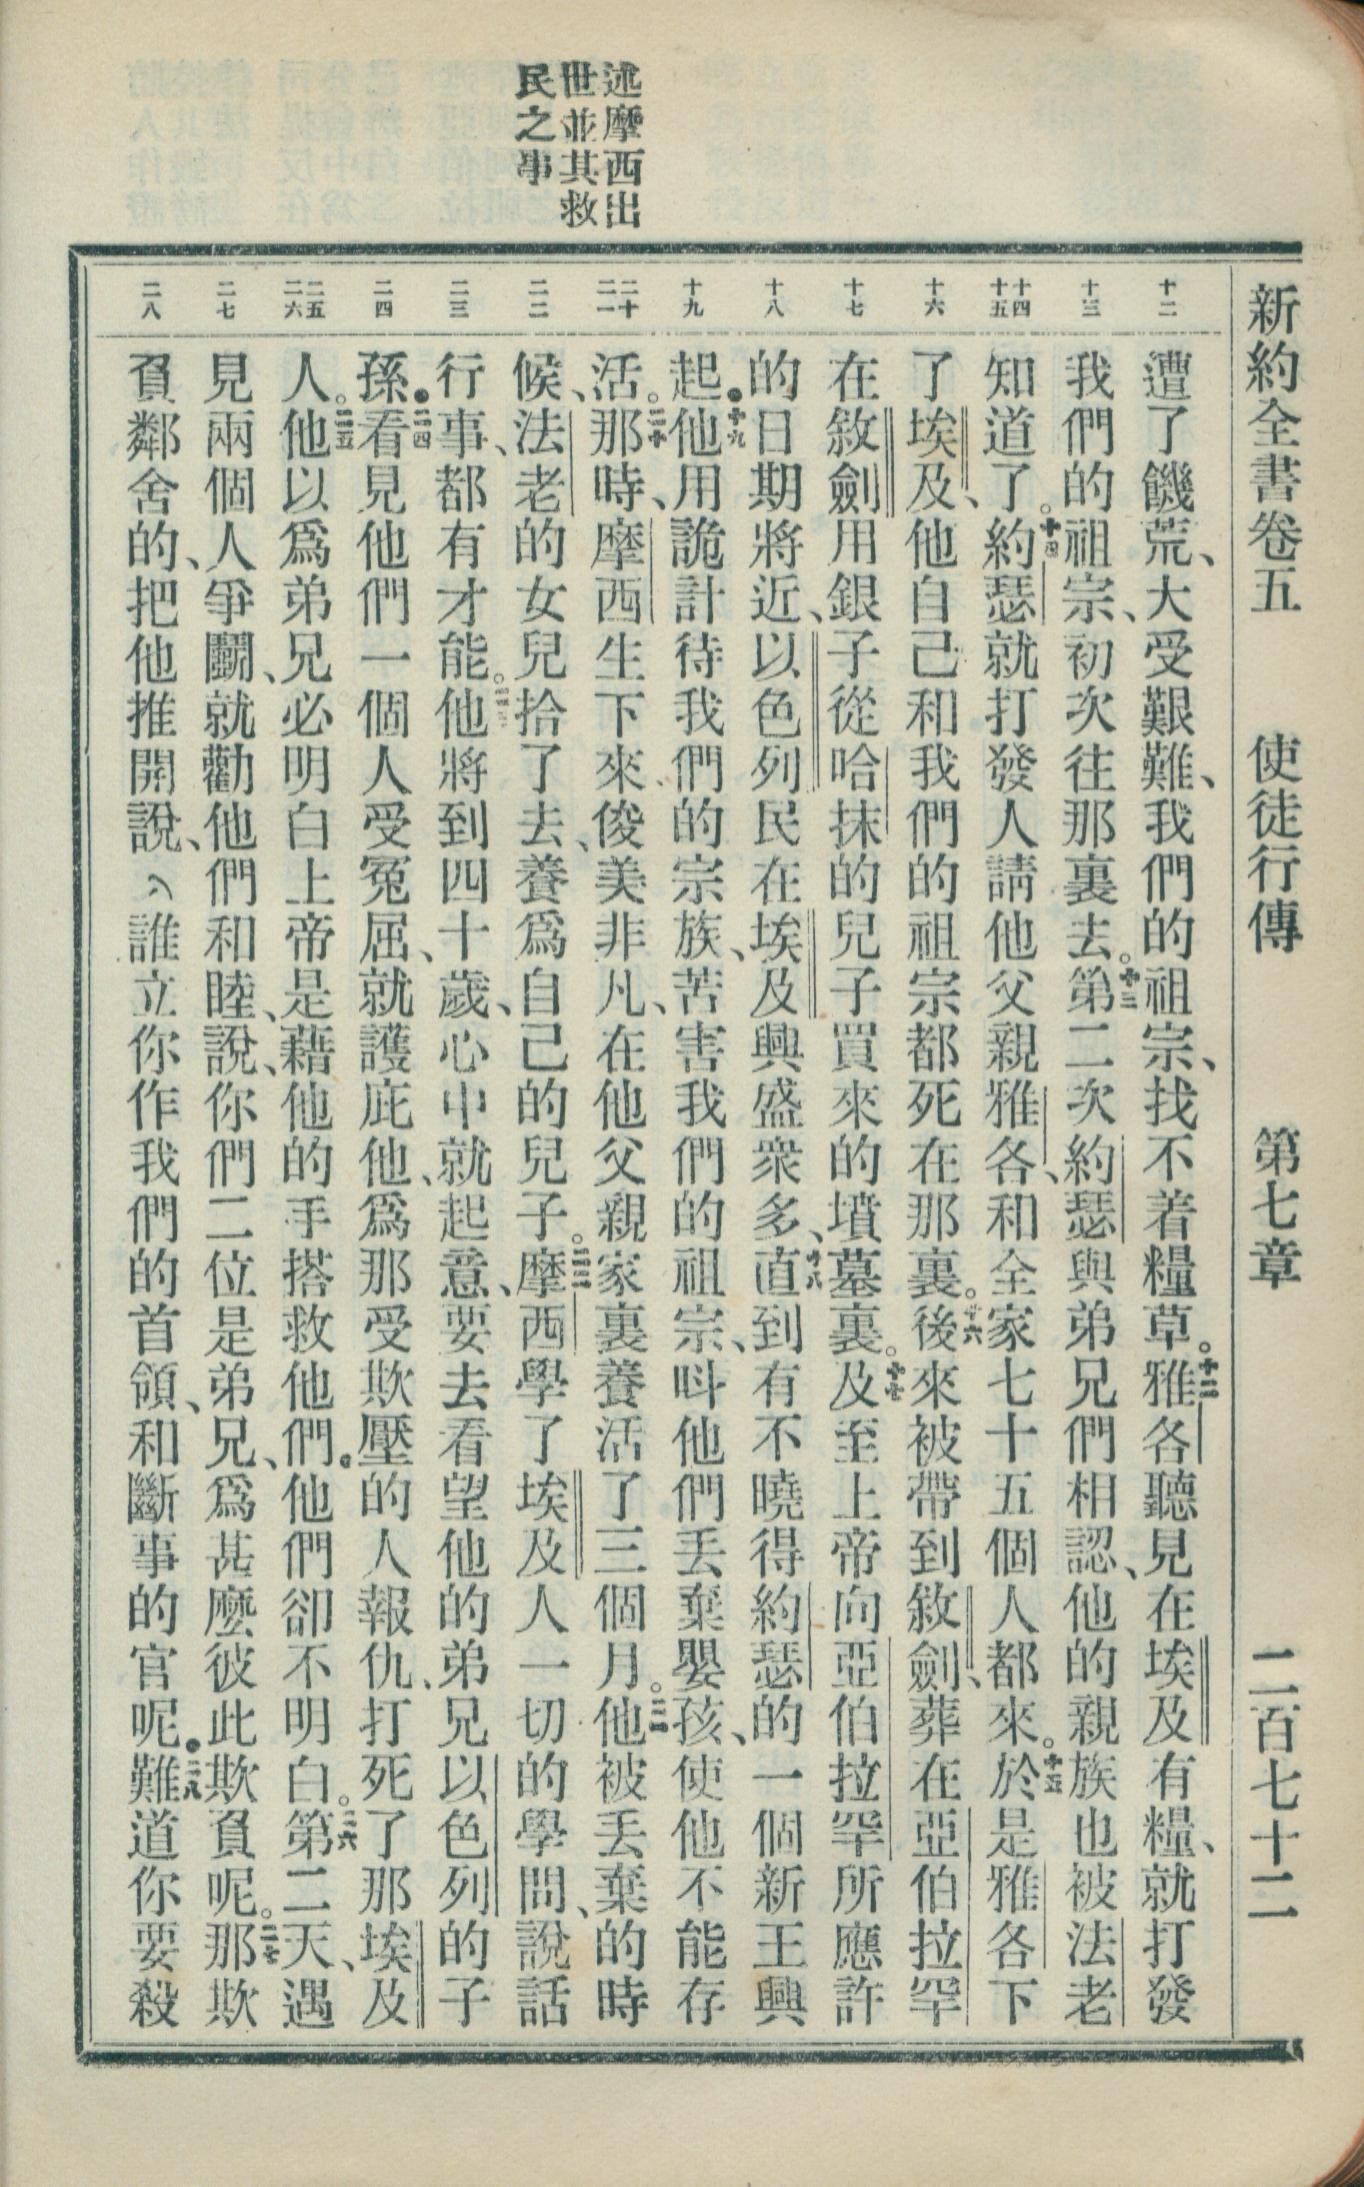 新約全書卷五　使徒行傳　第七章　二百七十二
述摩西出
世並其救
民之事
十二
十三
十四
十五
十六
十七
十八
十九
二十
二一
二二
二三
二四
二五
二六
二七
二八
遭了饑荒、大受艱難、我們的祖宗、找不着糧草。十二雅各聽見在埃及有糧、就打發
我們的祖宗、初次往那裏去。十三第二次約瑟與弟兄們相認、他的親族也被法老
知道了。十四約瑟就打發人請他父親雅各、和全家七十五個人都來。十五於是雅各下
了埃及、他自己和我們的祖宗都死在那裏。十六後來被帶到敘劍、葬在亞伯拉罕
在敘劍用銀子從哈抹的兒子買來的墳墓裏。十七及至上帝向亞伯拉罕所應許
的日期將近、以色列民在埃及興盛衆多、十八直到有不曉得約瑟的一個新王興
起。十九他用詭計待我們的宗族、苦害我們的祖宗、呌他們丢棄嬰孩、使他不能存
活。二十那時、摩西生下來、俊美非凡、在他父親家裏養活了三個月。二一他被丢棄的時
候、法老的女兒拾了去、養爲自己的兒子。二二摩西學了埃及人一切的學問、說話
行事、都有才能。二三他將到四十歲、心中就起意、要去看望他的弟兄以色列的子
孫。二四看見他們一個人受冤屈、就護庇他、爲那受欺壓的人報仇、打死了那埃及
人。二五他以爲弟兄必明白上帝是藉他的手搭救他們。他們卻不明白。二六第二天、遇
見兩個人爭鬭、就勸他們和睦、說、你們二位是弟兄、爲甚麼彼此欺負呢。二七那欺
負鄰舍的、把他推開說、誰立你作我們的首領、和斷事的官呢。二八難道你要殺